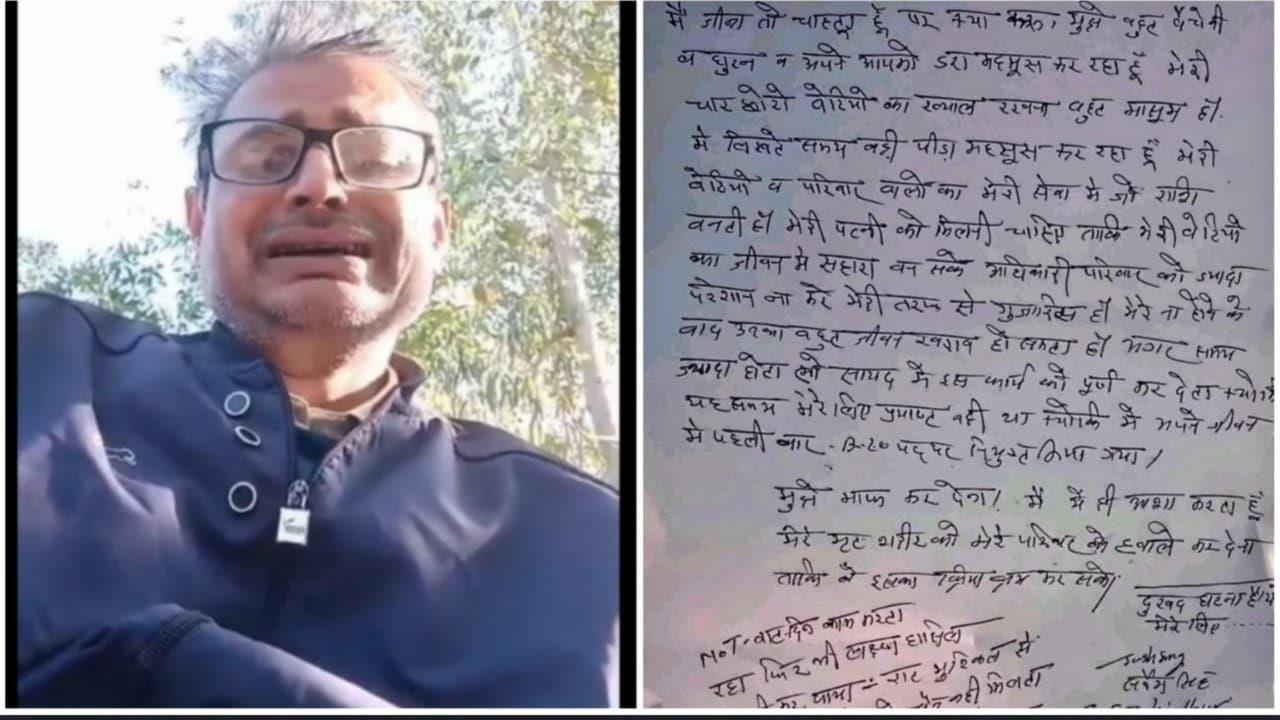 मै जीना तो चाहता हूँ पर क्या करू। मुझे बहुत बैचेनी
व घुटन व अपने आपको डरा महसूस कर रहा हूँ मेरी
चार छोटी बेटियो का ख्याल रखना बहुत मासूम हो.
मे लिखते समय बडी पीड़ा महसूस कर रहा हूँ मेरी
बेटियो व परिवार वालो का मेरी सेवा मे जो राशि
बनती हो मेरी पत्नी को मिलनी चाहिए ताकि मेरी बेटियो
का जीवन मे सहारा बन सके अधिकारी परिवार को ज्यादा
परेशान ना करे मेरी तरफ से गुजारिस हो मेरे ना होने के
बाद उनका बहुत जीवन खराब हो सकता हो अगर समय
ज्यादा होता तो सायद मै इस कार्य को पूर्ण कर देता
यह समय मेरे लिए नही था क्योकि मे अपने जीवन
मे पहली बार पद पर नियुक्त किया गया।
मुझे माफ कर देना। मै ही आशा करता हूँ
मेरे मृत शरीर को मेरे परिवार के हवाले कर देना
ताकि वे इसका क्रीया कर सके।
दुखद घटना है
मेरे लिए
दिन काम करता
रहा फिर भी लक्ष्य हासिल
कर पाया रात मुश्किल से
नही मिलता